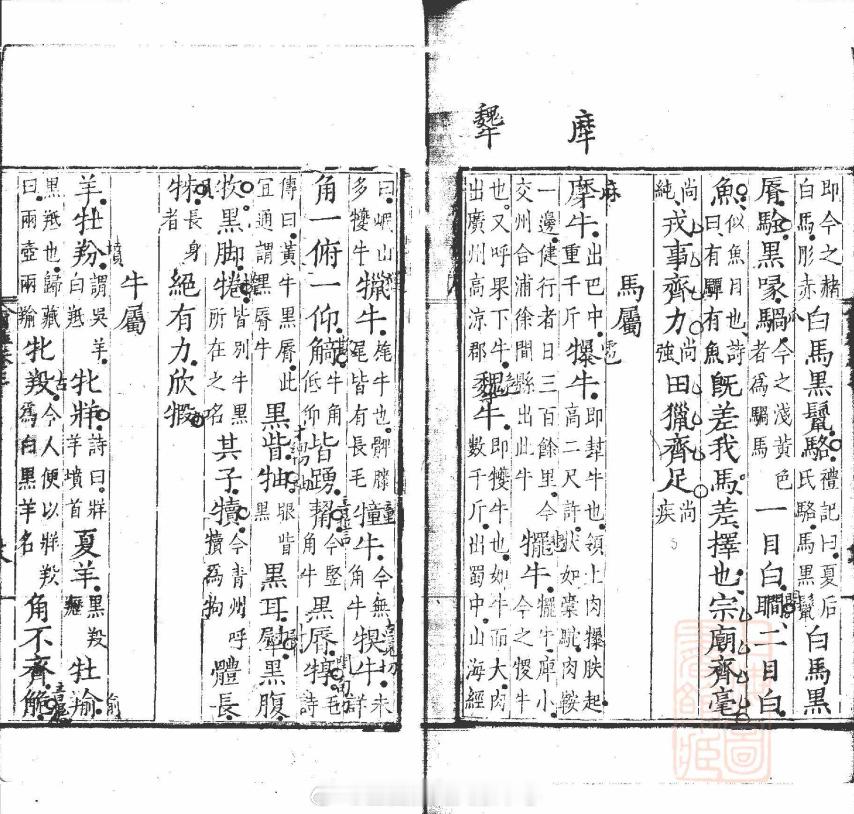 庳
犩
即今之赭白馬彤赤白馬黑鬛駱禮記曰夏后氏駱馬黑鬛白馬黑
脣駩黑喙騧今之淺黃色者為騧馬一目白瞷二目白
魚似魚目也詩曰有驔有魚既差我馬差擇也宗廟齊毫
尚純戎事齊力尚強田獵齊足尚疾
馬屬
犘牛出巴中重千斤犦牛即犎牛也領上肉犦胅起高二尺許狀如橐駝肉鞍
一邊健行者日三百餘里今交州合浦徐聞縣出此牛犤牛犤牛庳小今之㸹牛
也又呼果下牛出廣州高涼郡犩牛即犪牛也如牛而大肉數千斤出蜀中山海經
曰岷山多犪牛犣牛旄牛也髀膝尾皆有長毛犝牛今無角牛犑牛未詳
角一俯一仰觭牛角低仰皆踊觢今豎角牛黑脣犉毛詩
傳曰黃牛黑脣此宜通謂黑脣牛黑眥牰眼眥黑黑耳犚黑腹
牧黑脚犈皆別牛黑所在之名其子犢今青州呼犢為㸬體長
牬長身者絕有力欣犌
牛屬
羊牡羒謂吳羊白羝牝牂詩曰牂羊墳首夏羊黑羖䍽牡羭
黑羝也歸藏曰兩壺兩羭牝羖今人便以牂羖為白黑羊名角不齊觤